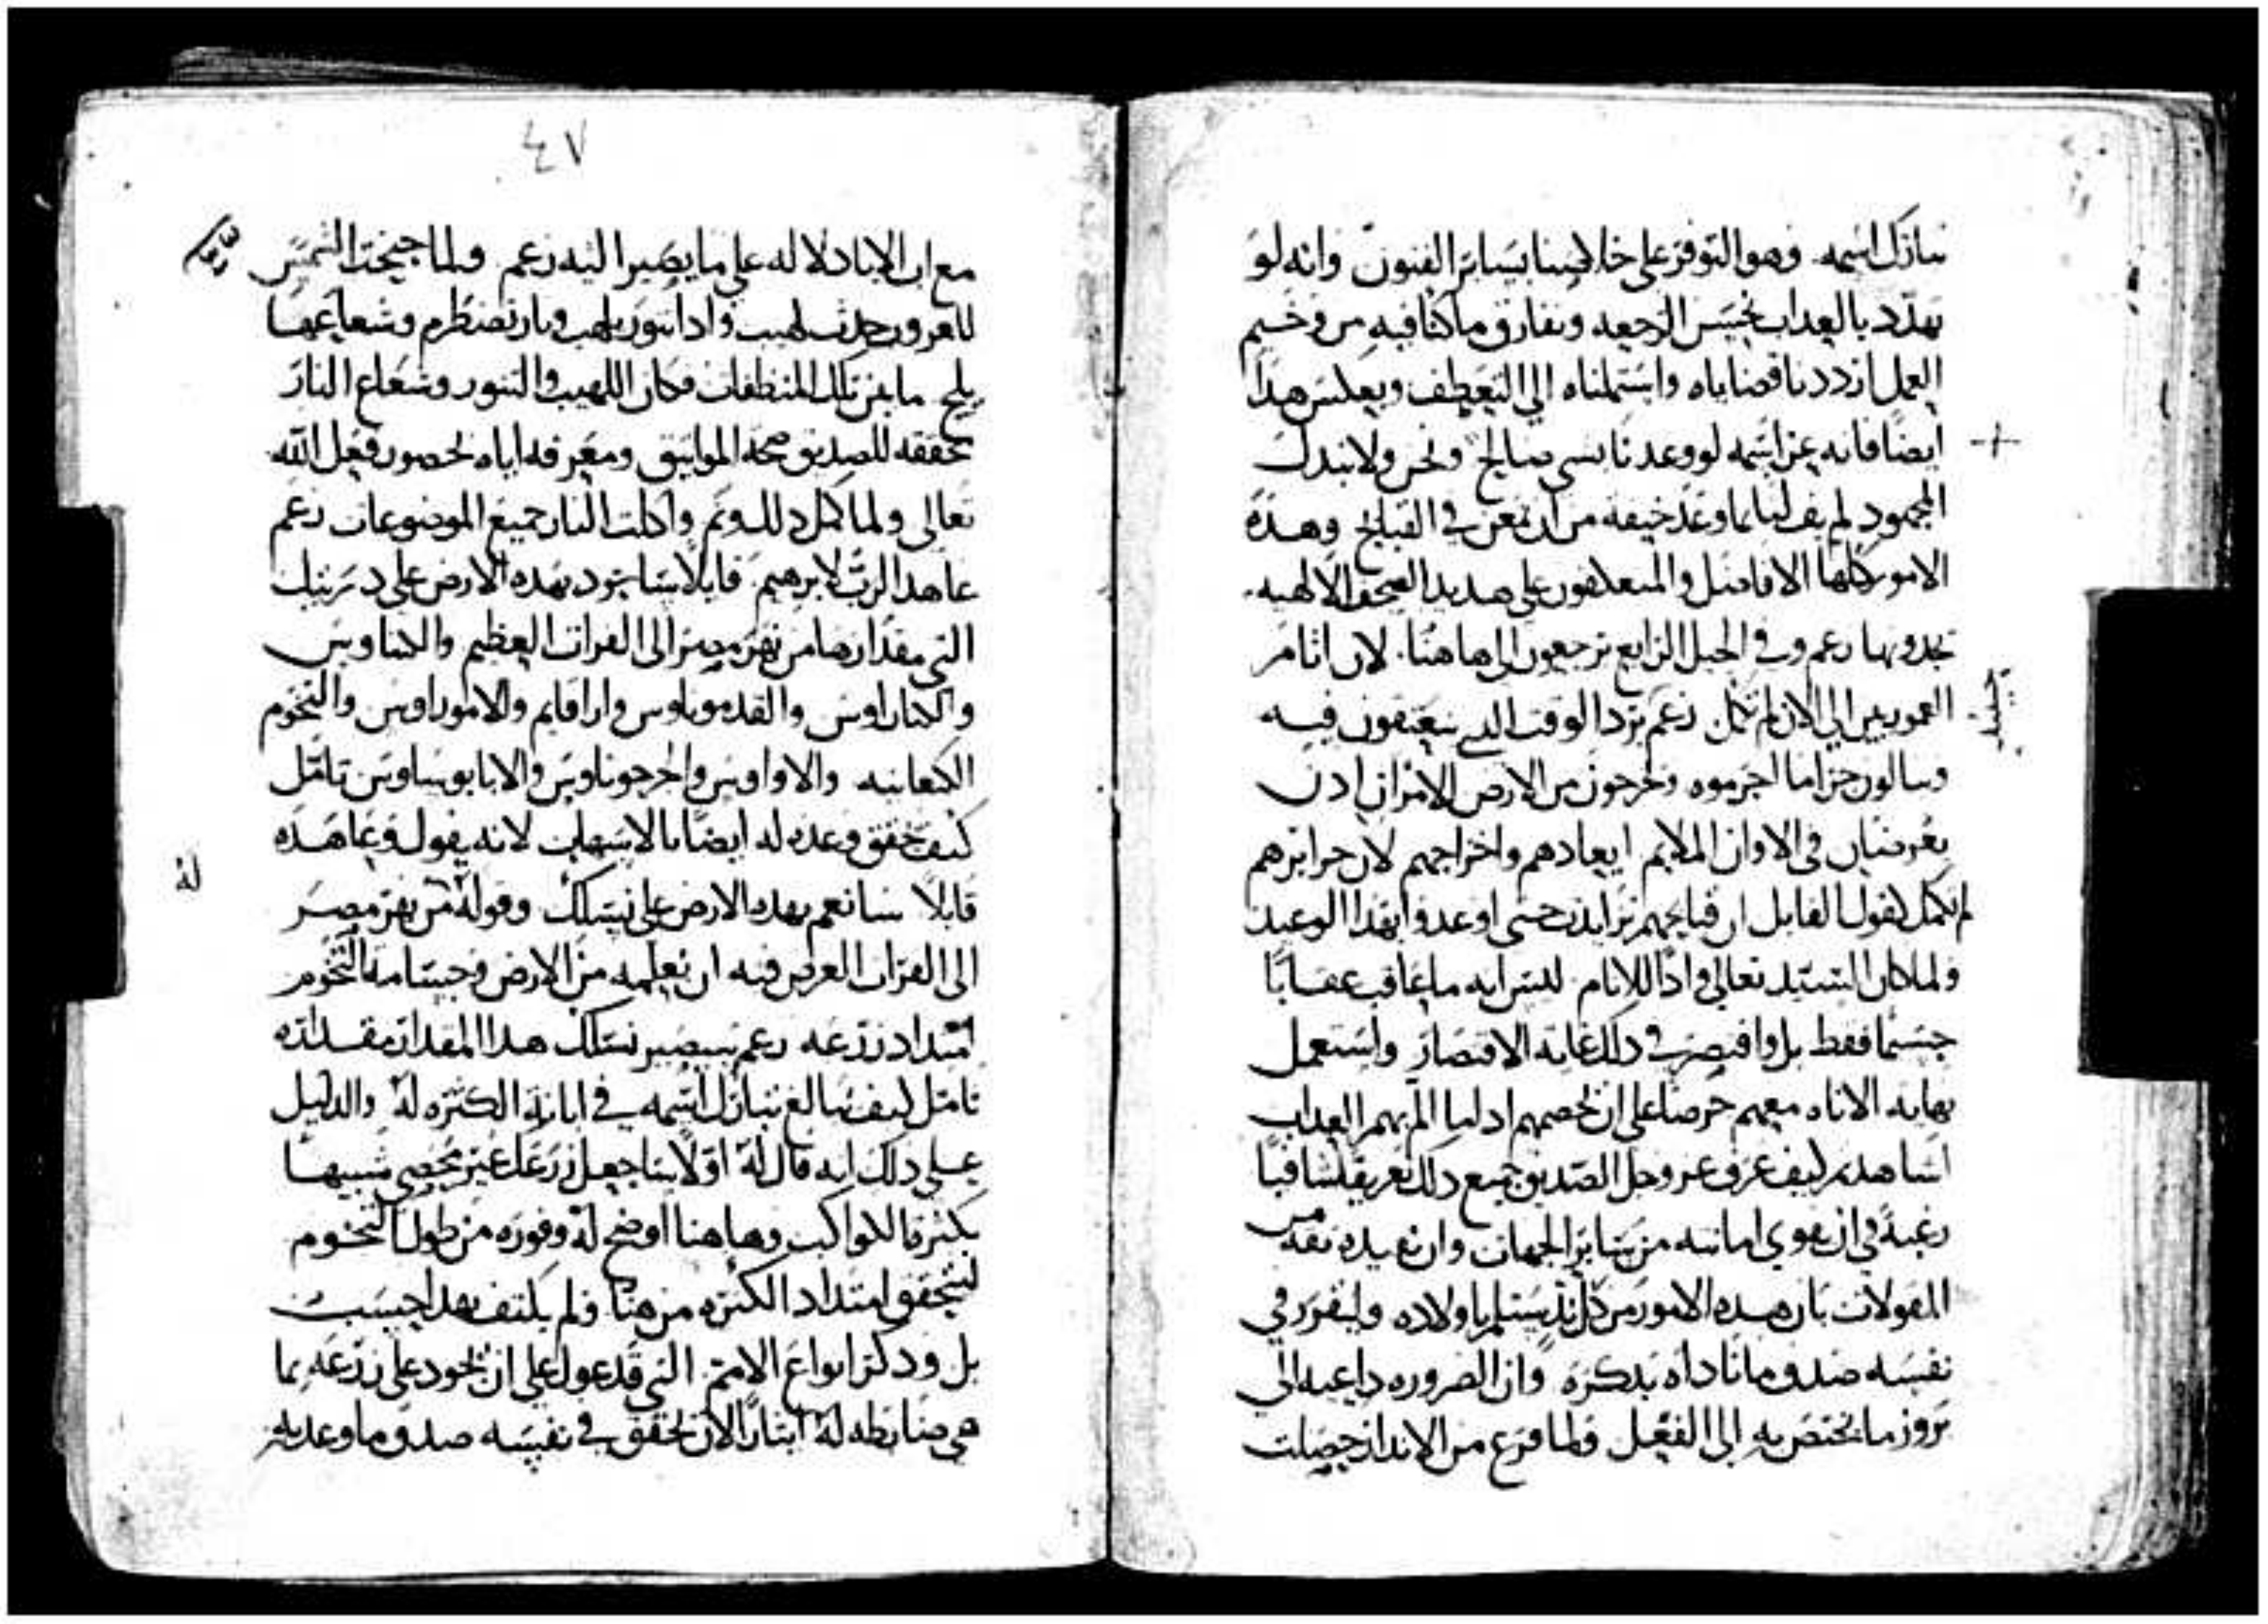 تبارك اسمه وهو التوفر على خلاصنا بسائر الفنون وانه لو
تهدد بالعداب تحسن الرجعه ونفارق ماكنا فيه من وخيم
العمل ازددنا قضاياه واستملناه الي التعطف وبعكس هدا
ايضا فانه عز اسمه لو وعدنا بسي صالح ونحن ولا نبدل
المحمود لم يف لنا بما وعد خيفه من ان نمعن في القبايح وهده
الامور كلها الافاضل والمتعلقون على هديد الصحف الالهيه
تجدونها زعم وفي الجيل الرابع ترجعون الي هاهنا لان اثام
الموريين الي الان لم تكمل زعم يرد الوقت الدي يعتقون فيه
وينالون جزا ما اجرموه ويخرجون من الارض الامران ادن
يعرضان في الاوان الملايم ايعادهم واخراجهم لان جرايرهم
لم تكمل لقول القايل ان قبايحهم تزايدت حتى اوعدوا بهدا الوعيد
ولما كان السيد تعالى وادا للانام ليس انه ما عاقب عقابا
جسيما فقط بل واقتصر في دلك غايه الاقتصار واستعمل
نهايه الاناه معهم حرصا على ان يخصهم اد لما الم بهم العداب
اشاهدتم كيف عرف عز وجل الصديق جميع دلك تعريفا شافيا
رغبة في ان يقوي امانته من سائر الجهات وان تفيده ثقه من
المقولات بان هده الامور من كل بد ستلم باولاده وليقرر في
نفسه صدق ما ناداه بدكره وان الضروره داعيه الي
بروز ما يختص به الى الفعل فلما فرغ من الاندار حصلت
٤٧
مع ابي الابا دلاله على ما يصير اليه زعم ولما جنحت الشمس
للغروب حدث لهيب وادا تنور يلهب ونار تضطرم وشعاعها
يلج ما بين تلك المنطفات فكان اللهيب والتنور وشعاع النار
تحققه للصديق صحة المواثيق ومعرفه اياه لحضور فعل الله
تعالى ولما كمل دلك وتم واكلت النار جميع الموضوعات زعم
عاهد الرب لابرهيم قايلا ساجود بهده الارض على درييك
التي مقدارها من نهر مصر الى الفرات العظيم والكناويس
والكناراوس والقدموناوس وارافايم والاموراوس والتخوم
الكنعانيه والاواوس والجرجوناوس والايابوساوس تامل
كيف تحقق وعده له ايضا بالاسهاب لانه يقول وعاهده
قايلا سانعم بهده الارض على نسلك وقوله من نهر مصر
له
الى الفرات الغرض فيه ان يعلمه من الارض وجسامة التخوم
امتداد زرعه زعم سيصير نسلك هدا المقدار مقداره
تامل كيف يبالغ تبارك اسمه في ابانة الكثره له والدليل
على دلك انه قال له اولا ساجعل زرعك غير محصي شبيها
بكثرة الكواكب وهاهنا اوضح له وفوره من طول التخوم
ليتحقق امتداد الكثره من هنا ولم يكتف بهدا حسب
بل ودكر انواع الامم التي قد عول على ان يجود على زرعه بما
هي ضابطه له ايثارا لان يحقق في نفسه صدق ما وعد به